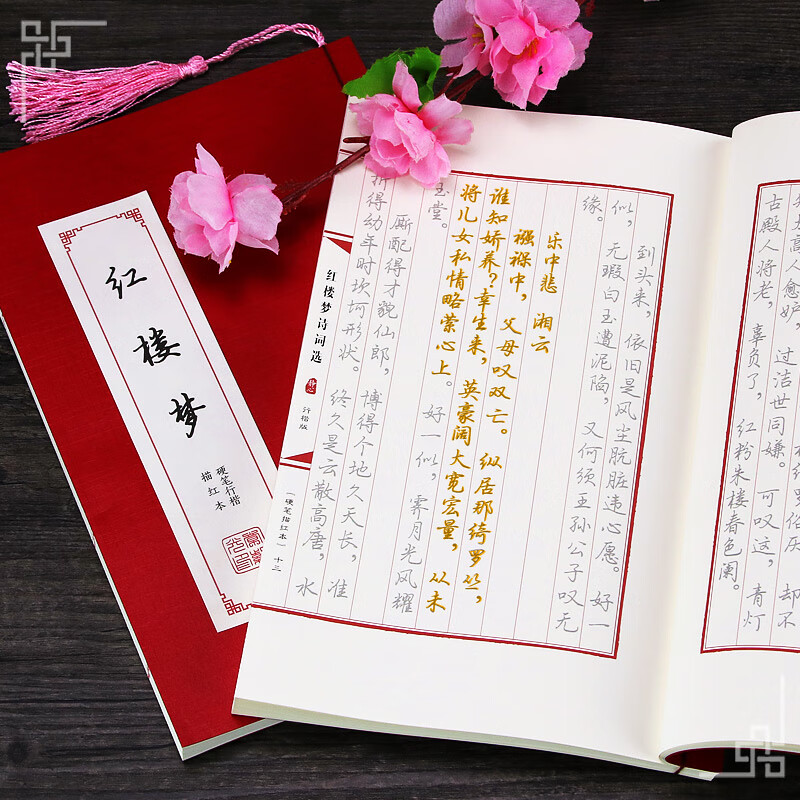 红楼梦
硬笔行楷
描红本
罗俗厌，却不
太高人愈妒，过洁世同嫌。可叹这，青灯
古殿人将老，辜负了，红粉朱楼春色阑。
到头来，依旧是风尘肮脏违心愿。好一
似，无瑕白玉遭泥陷，又何须王孙公子叹无
缘。
乐中悲 湘云
襁褓中，父母叹双亡。纵居那绮罗丛，
谁知娇养？幸生来，英豪阔大宽宏量，从未
将儿女私情略萦心上。好一似，霁月光风耀
玉堂。
厮配得才貌仙郎，博得个地久天长，准
折得幼年时坎坷形状。终久是云散高唐，水
红楼梦诗词选 静心 行楷版 (硬笔描红本) 十三